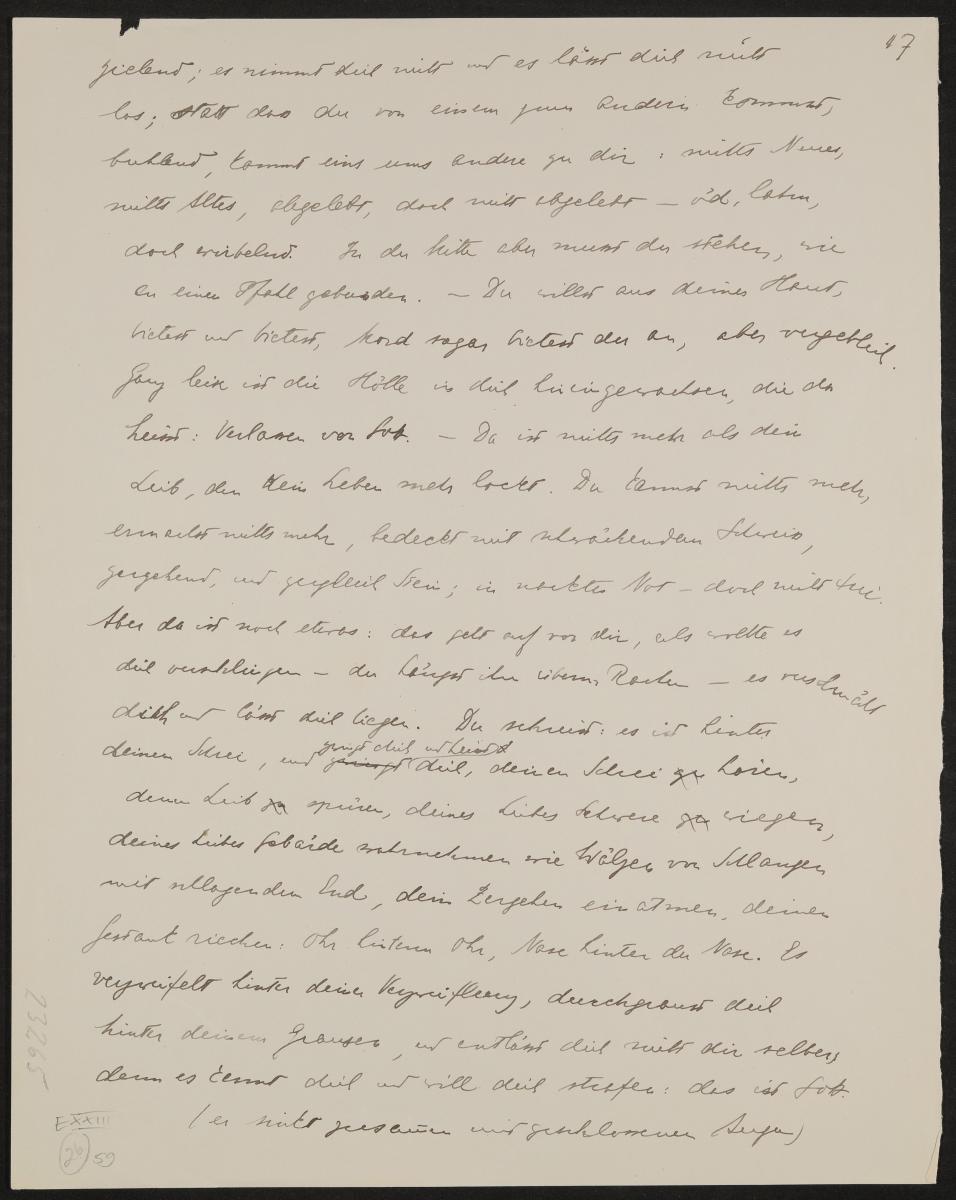 17
zielend; es nimmt dich nicht und es lässt dich nicht
los; statt dass du von einem zum andern kommst,
buhlend, kommt eins ums andere zu dir: nichts Neues,
nichts Altes, abgelebt, doch nicht abgelebt – öd, lahm,
doch wirbelnd. In der Mitte aber musst du stehen, wie
an einen Pfahl gebunden. – Du willst aus deiner Haut,
bietest und bietest, Mord sogar bietest du an, aber vergeblich.
Ganz leise ist die Hölle in dich hineingewachsen, die da
heisst: Verlassen von Gott. – Da ist nichts mehr als dein
Leib, den kein Leben mehr lockt. Du kannst nichts mehr,
ermachst nichts mehr, bedeckt mit schwächendem Schweiss,
zergehend, und zugleich Stein; in nackter Not – doch nicht frei.
Aber da ist noch etwas: das geht auf vor dir, als wollte es
dich verschlingen – du hängst ihm überm Rachen – es verschmäht
dich und lässt dich liegen. Du schreist: es ist hinter
zwingt dich und heisst
deinem Schrei, und dich, deinen Schrei zu hören,
deinen Leib zu spüren, deines Leibes Schwere zu wiegen,
deines Leibes Gebärde wahrnehmen wie Wälzen von Schlangen
mit schlagendem End, dein Zergehen einatmen, deinen
Gestank riechen: Ohr hinterm Ohr, Nase hinter der Nase. Es
verzweifelt hinter deiner Verzweiflung, durchgraust dich
hinter deinem Grausen, und entlässt dich nicht dir selber,
denn es kennt dich und will dich strafen: das ist Gott.
(er sinkt zusammen mit geschlossenen Augen)
23265
EXXIII
26
59